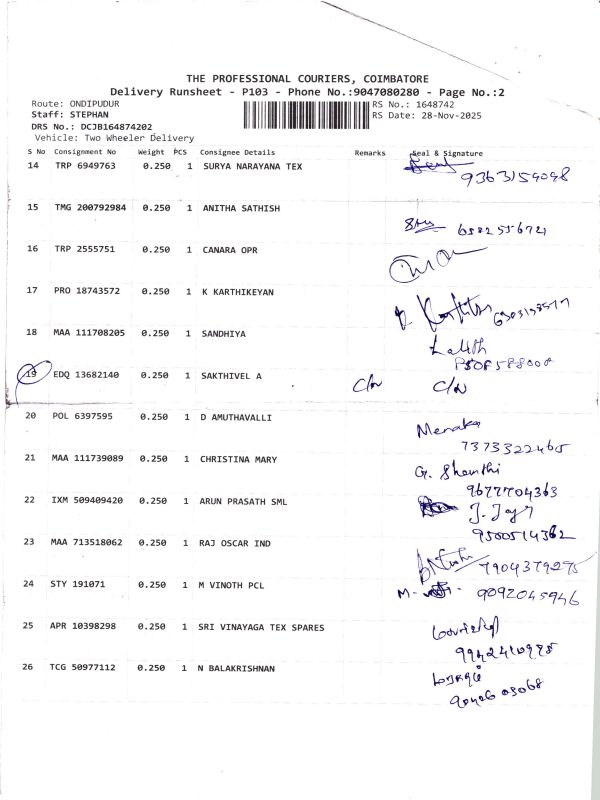 THE PROFESSIONAL COURIERS, COIMBATORE
Delivery Runsheet - P103 - Phone No.:9047080280 - Page No.:2
Route: ONDIPUDUR RS No.: 1648742
Staff: STEPHAN RS Date: 28-Nov-2025
DRS No.: DCJB164874202
Vehicle: Two Wheeler Delivery
S No Consignment No Weight PCS Consignee Details Remarks Seal & Signature
14 TRP 6949763 0.250 1 SURYA NARAYANA TEX
9363154098
15 TMG 200792984 0.250 1 ANITHA SATHISH
6382556721
16 TRP 2555751 0.250 1 CANARA OPR
17 PRO 18743572 0.250 1 K KARTHIKEYAN
18 MAA 111708205 0.250 1 SANDHIYA
Lalith
19 EDQ 13682140 0.250 1 SAKTHIVEL A C/N C/N
20 POL 6397595 0.250 1 D AMUTHAVALLI
Menaka
7373322465
21 MAA 111739089 0.250 1 CHRISTINA MARY
G. Shanthi
9677704363
22 IXM 509409420 0.250 1 ARUN PRASATH SML
9500514362
23 MAA 713518062 0.250 1 RAJ OSCAR IND
7904379275
24 STY 191071 0.250 1 M VINOTH PCL
9092045946
25 APR 10398298 0.250 1 SRI VINAYAGA TEX SPARES
26 TCG 50977112 0.250 1 N BALAKRISHNAN